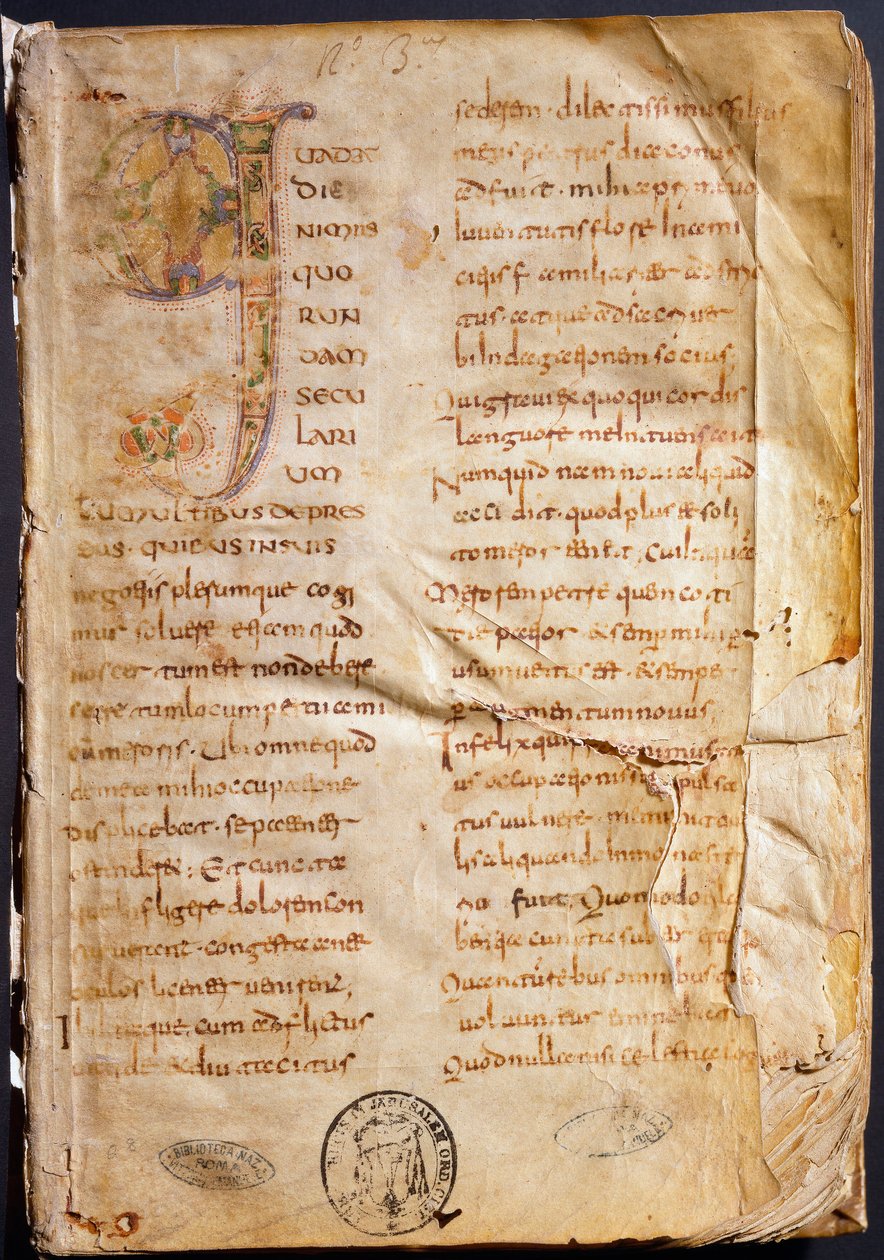 Nº 3.º
QUADA
DIE
NIMIIS
QUO
RUN
DAM
SECU
LARI
UM
TUMULTIBUS DEPRES
SUS. QUIBUS IN SUIS
negotiis plerumque cogi
mur solvere etiam quod
nos certum est non debere
tum locum petii ami
cum meroris. Ubi omne quod
de mea mihi occupatione
displicebat. se patenter
ostenderet; Et cuncta
que infligere dolorem con
sueverant. congesta ante
oculos licenter venirent;
Ibi itaque, cum adflictus
valde et diu tacitus
sederem. dilectissimus filius
meus petrus diaconus
adfuit. mihi a primevo
iuventutis flore In ami
citiis familiariter
tus. atque ad sacri ver
bi Indagationem socius,
Qui gravi excoqui cordis
languore me Intuens ait
Numquid nam novi aliquid
acci dit. quod plus te soli
to meror tenet; Cui Inquam
Merorem petre quem coti
die patior et semper mihi per
usum vetus est. et semper
per augmentum novus,
Infelix qui animus
us occupationis pulsa
tus vulnere. meminit
lis aliquando In monaste
rio fuit, Quomodo
bentia cuncta subter erant
Quantum rebus omnibus que
volvuntur eminebat
Quod nulla nisi celestia cogi
BIBLIOTECA NAZ.
ROMA
IERUSALEM ORD. CIST